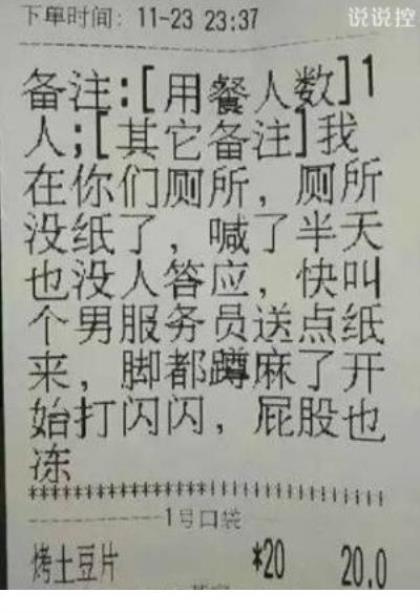 下单时间：11-23 23:37
说说控
备注:[用餐人数]1
人;[其它备注]我
在你们厕所，厕所
没纸了，喊了半天
也没人答应，快叫
个男服务员送点纸
来，脚都蹲麻了开
始打闪闪，屁股也
冻
1号口袋
烤土豆片 *20 20.0